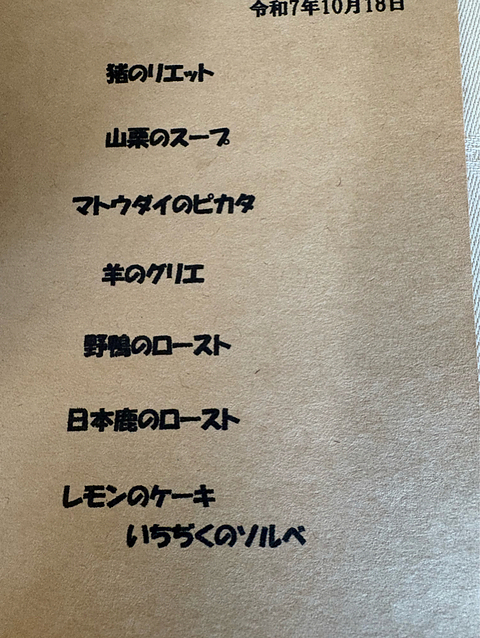 令和7年10月18日
猪のリエット
山栗のスープ
マトウダイのピカタ
羊のグリエ
野鴨のロースト
日本鹿のロースト
レモンのケーキ
いちぢくのソルベ